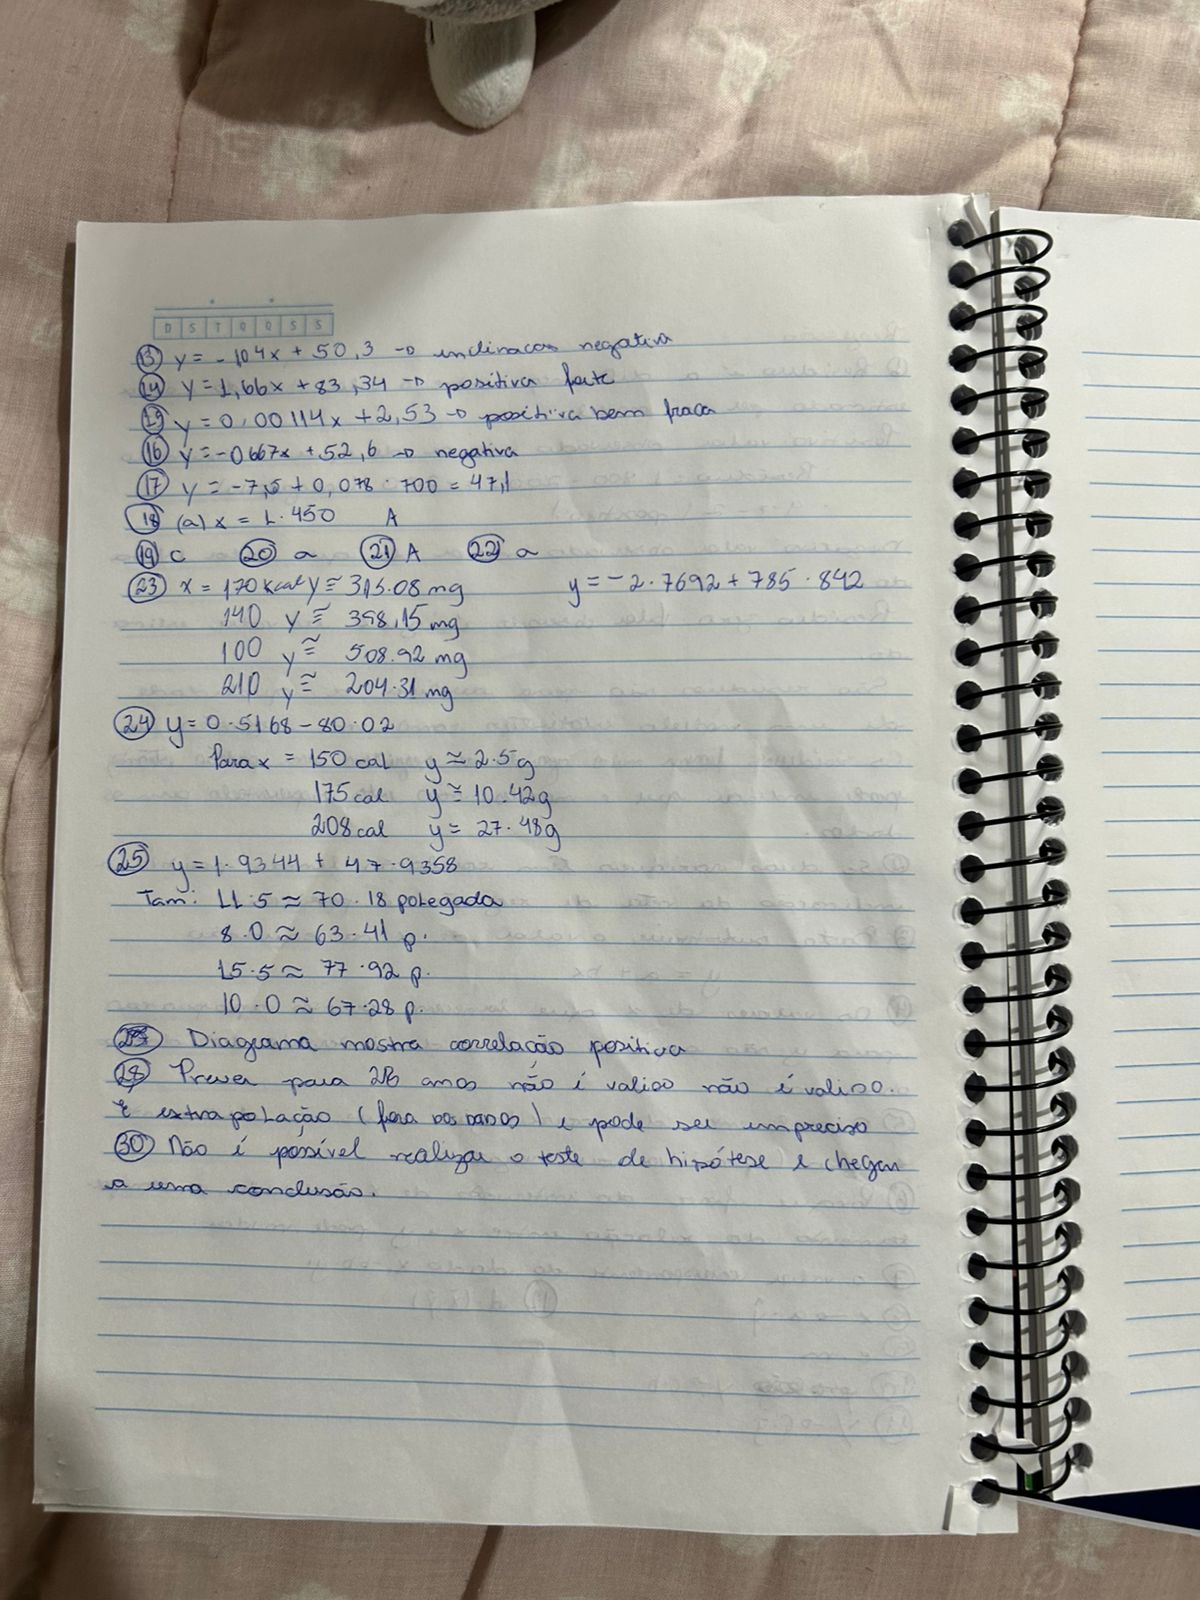 D S T Q Q S S
13 y = -1,04x + 50,3 → inclinacao negativa
14 y = 1,66x + 83,34 → positiva forte
15 y = 0,00114x + 2,53 → positiva bem fraca
16 y = -0667x + 52,6 → negativa
17 y = -7,5 + 0,078 · 700 = 47,1
18 (a) x = 1.450 A
19 C 20 a 21 A 22 a
23 x = 170 kcal y ≅ 315.08 mg y = -2.7692 + 785.842
140 y ≅ 398,15 mg
100 y ≅ 508.92 mg
210 y ≅ 204.31 mg
24 y = 0.5168 - 80.02
Para x = 150 cal y ≈ 2.5g
175 cal y ≅ 10.42g
208 cal y = 27.48g
25 y = 1.9344 + 47.9358
Tam: 11.5 ≈ 70.18 polegada
8.0 ≈ 63.41 p.
15.5 ≈ 77.92 p.
10.0 ≈ 67.28 p.
Diagrama mostra correlação positiva
28 Prever para anos não é valido não é valido.
É extrapolação (fora dos dados) e pode ser impreciso
30 Não é póssível realizar o teste de hipótese e chegar
a uma conclusão.